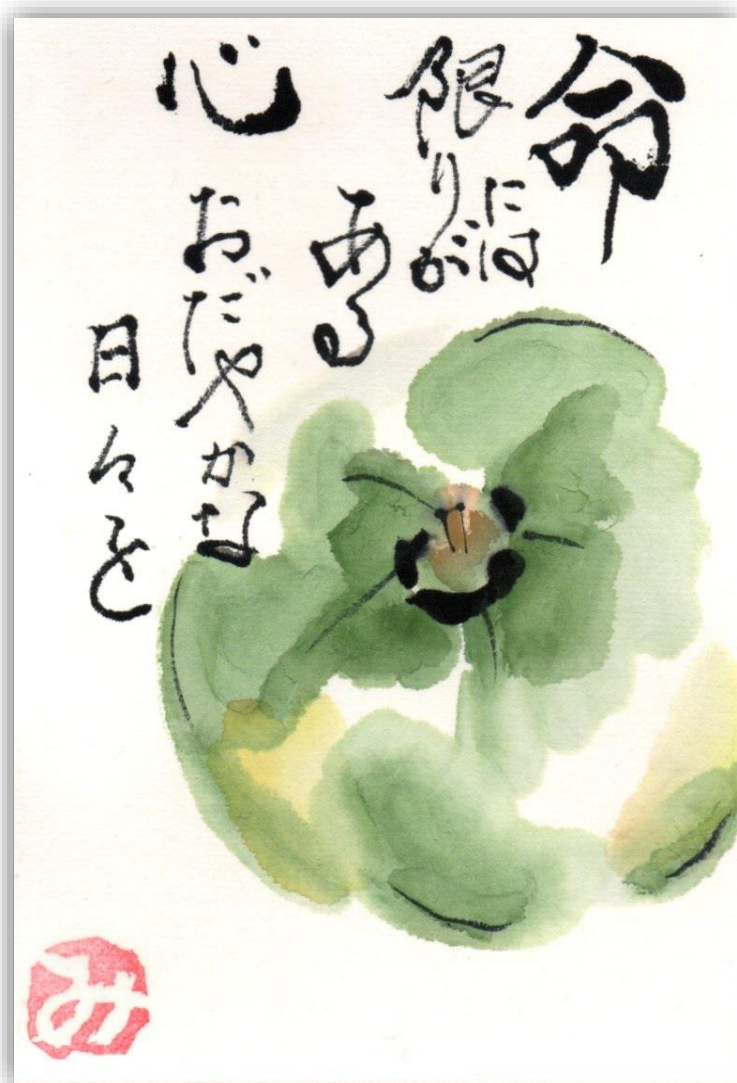 命
には
限りが
ある
心
おだやかな
日々を
み